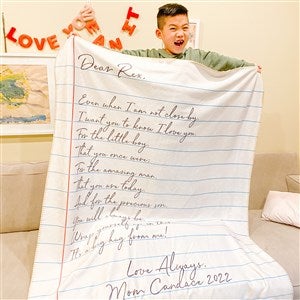 LOVE
IT
Dear Rex,
Even when I am not close by
I want you to know I love you
For the little boy
That you once were,
For the amazing man
That you are today
And for the precious son
You will always be
Wrap yourself up in
It's a big hug from me!
Love Always,
Mom Candace 2022